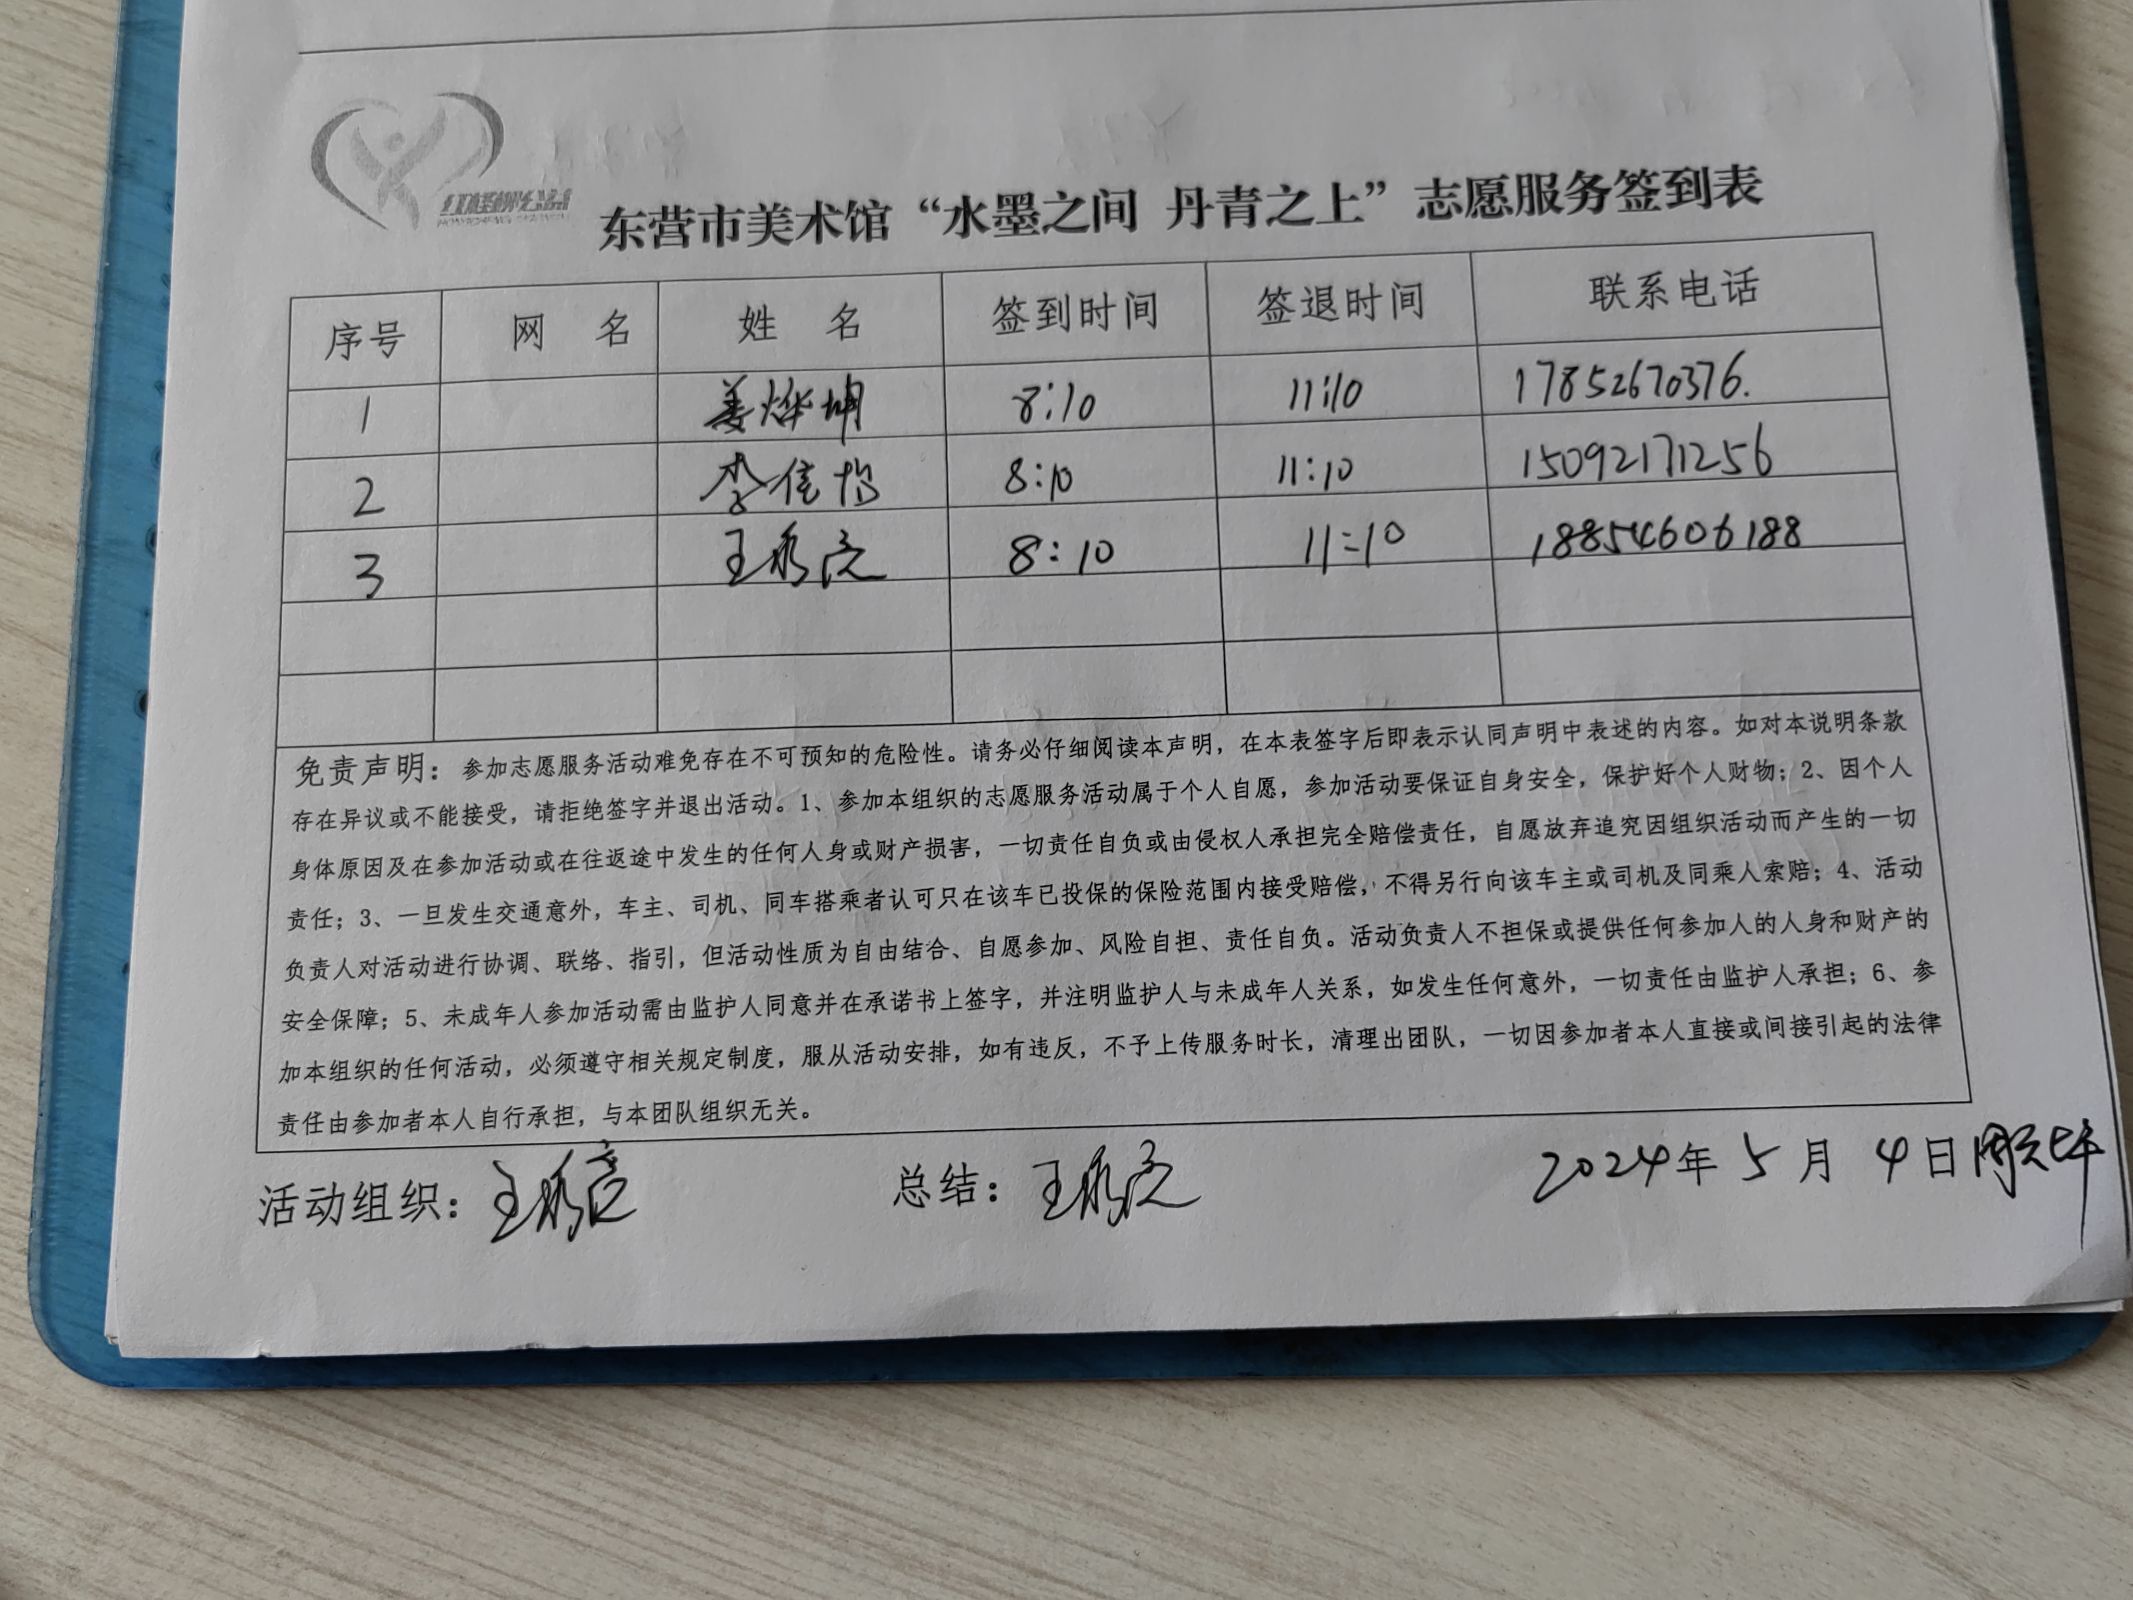 红柽柳公益
东营市美术馆“水墨之间 丹青之上”志愿服务签到表
序号 网 名 姓 名 签到时间 签退时间 联系电话
1 姜烨坤 8:10 11:10 17852670376.
2 李佳怡 8:10 11:10 15092171256
3 王秀彦 8:10 11:10 18854606188
免责声明：参加志愿服务活动难免存在不可预知的危险性。请务必仔细阅读本声明，在本表签字后即表示认同声明中表述的内容。如对本说明条款
存在异议或不能接受，请拒绝签字并退出活动。1、参加本组织的志愿服务活动属于个人自愿，参加活动要保证自身安全，保护好个人财物；2、因个人
身体原因及在参加活动或在往返途中发生的任何人身或财产损害，一切责任自负或由侵权人承担完全赔偿责任，自愿放弃追究因组织活动而产生的一切
责任；3、一旦发生交通意外，车主、司机、同车搭乘者认可只在该车已投保的保险范围内接受赔偿，不得另行向该车主或司机及同乘人索赔；4、活动
负责人对活动进行协调、联络、指引，但活动性质为自由结合、自愿参加、风险自担、责任自负。活动负责人不担保或提供任何参加人的人身和财产的
安全保障；5、未成年人参加活动需由监护人同意并在承诺书上签字，并注明监护人与未成年人关系，如发生任何意外，一切责任由监护人承担；6、参
加本组织的任何活动，必须遵守相关规定制度，服从活动安排，如有违反，不予上传服务时长，清理出团队，一切因参加者本人直接或间接引起的法律
责任由参加者本人自行承担，与本团队组织无关。
活动组织：王秀彦 总结：王秀彦 2024年 5 月 4日